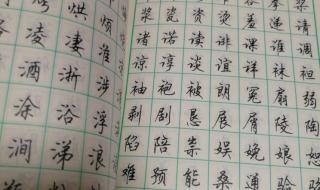 烘 烦
凌 凄 淮
酒 浙 涉
涂 浴 浮
涧 涕 浪
浆 瓷 资 烫 差 拳
诸 诺 读 诽 课 谁 调 请
谅 谆 谈 谊 祥 袜 袒
袖 袍 被 朗 冤 扇 弱
剥 剧 恳 展 屑 陵 陶
陷 陪 祟 娱 娩 娘 恕
难 预 能 桑 通 验